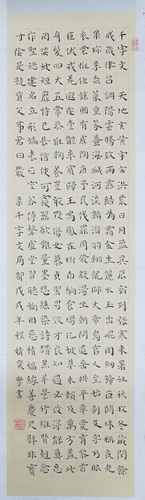 千字文 天地玄黃宇宙洪荒日月盈昃辰宿列張寒來暑往秋收冬藏閏餘
成歲律呂調陽雲騰致雨露結為霜金生麗水玉出崑岡劍號巨闕珠稱夜光
果珍李柰菜重芥薑海鹹河淡鱗潛羽翔龍師火帝鳥官人皇始制文字乃服
衣裳推位讓國有虞陶唐弔民伐罪周發殷湯坐朝問道垂拱平章愛育黎首
臣伏戎羌遐邇壹體率賓歸王鳴鳳在樹白駒食場化被草木賴及萬方蓋此
身髮四大五常恭惟鞠養豈敢毀傷女慕貞潔男效才良知過必改得能莫忘
罔談彼短靡恃己長信使可覆器欲難量墨悲絲染詩讚羔羊景行維賢克念
作聖德建名立形端表正空谷傳聲虛堂習聽禍因惡積福緣善慶尺璧非寶
寸陰是競資父事君曰嚴 千字文局 戊戌年程靖 學書